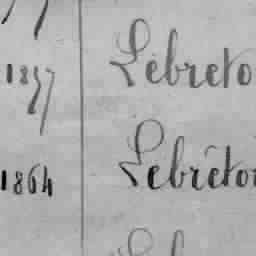 1857 Lebreto
1864 Lebréto